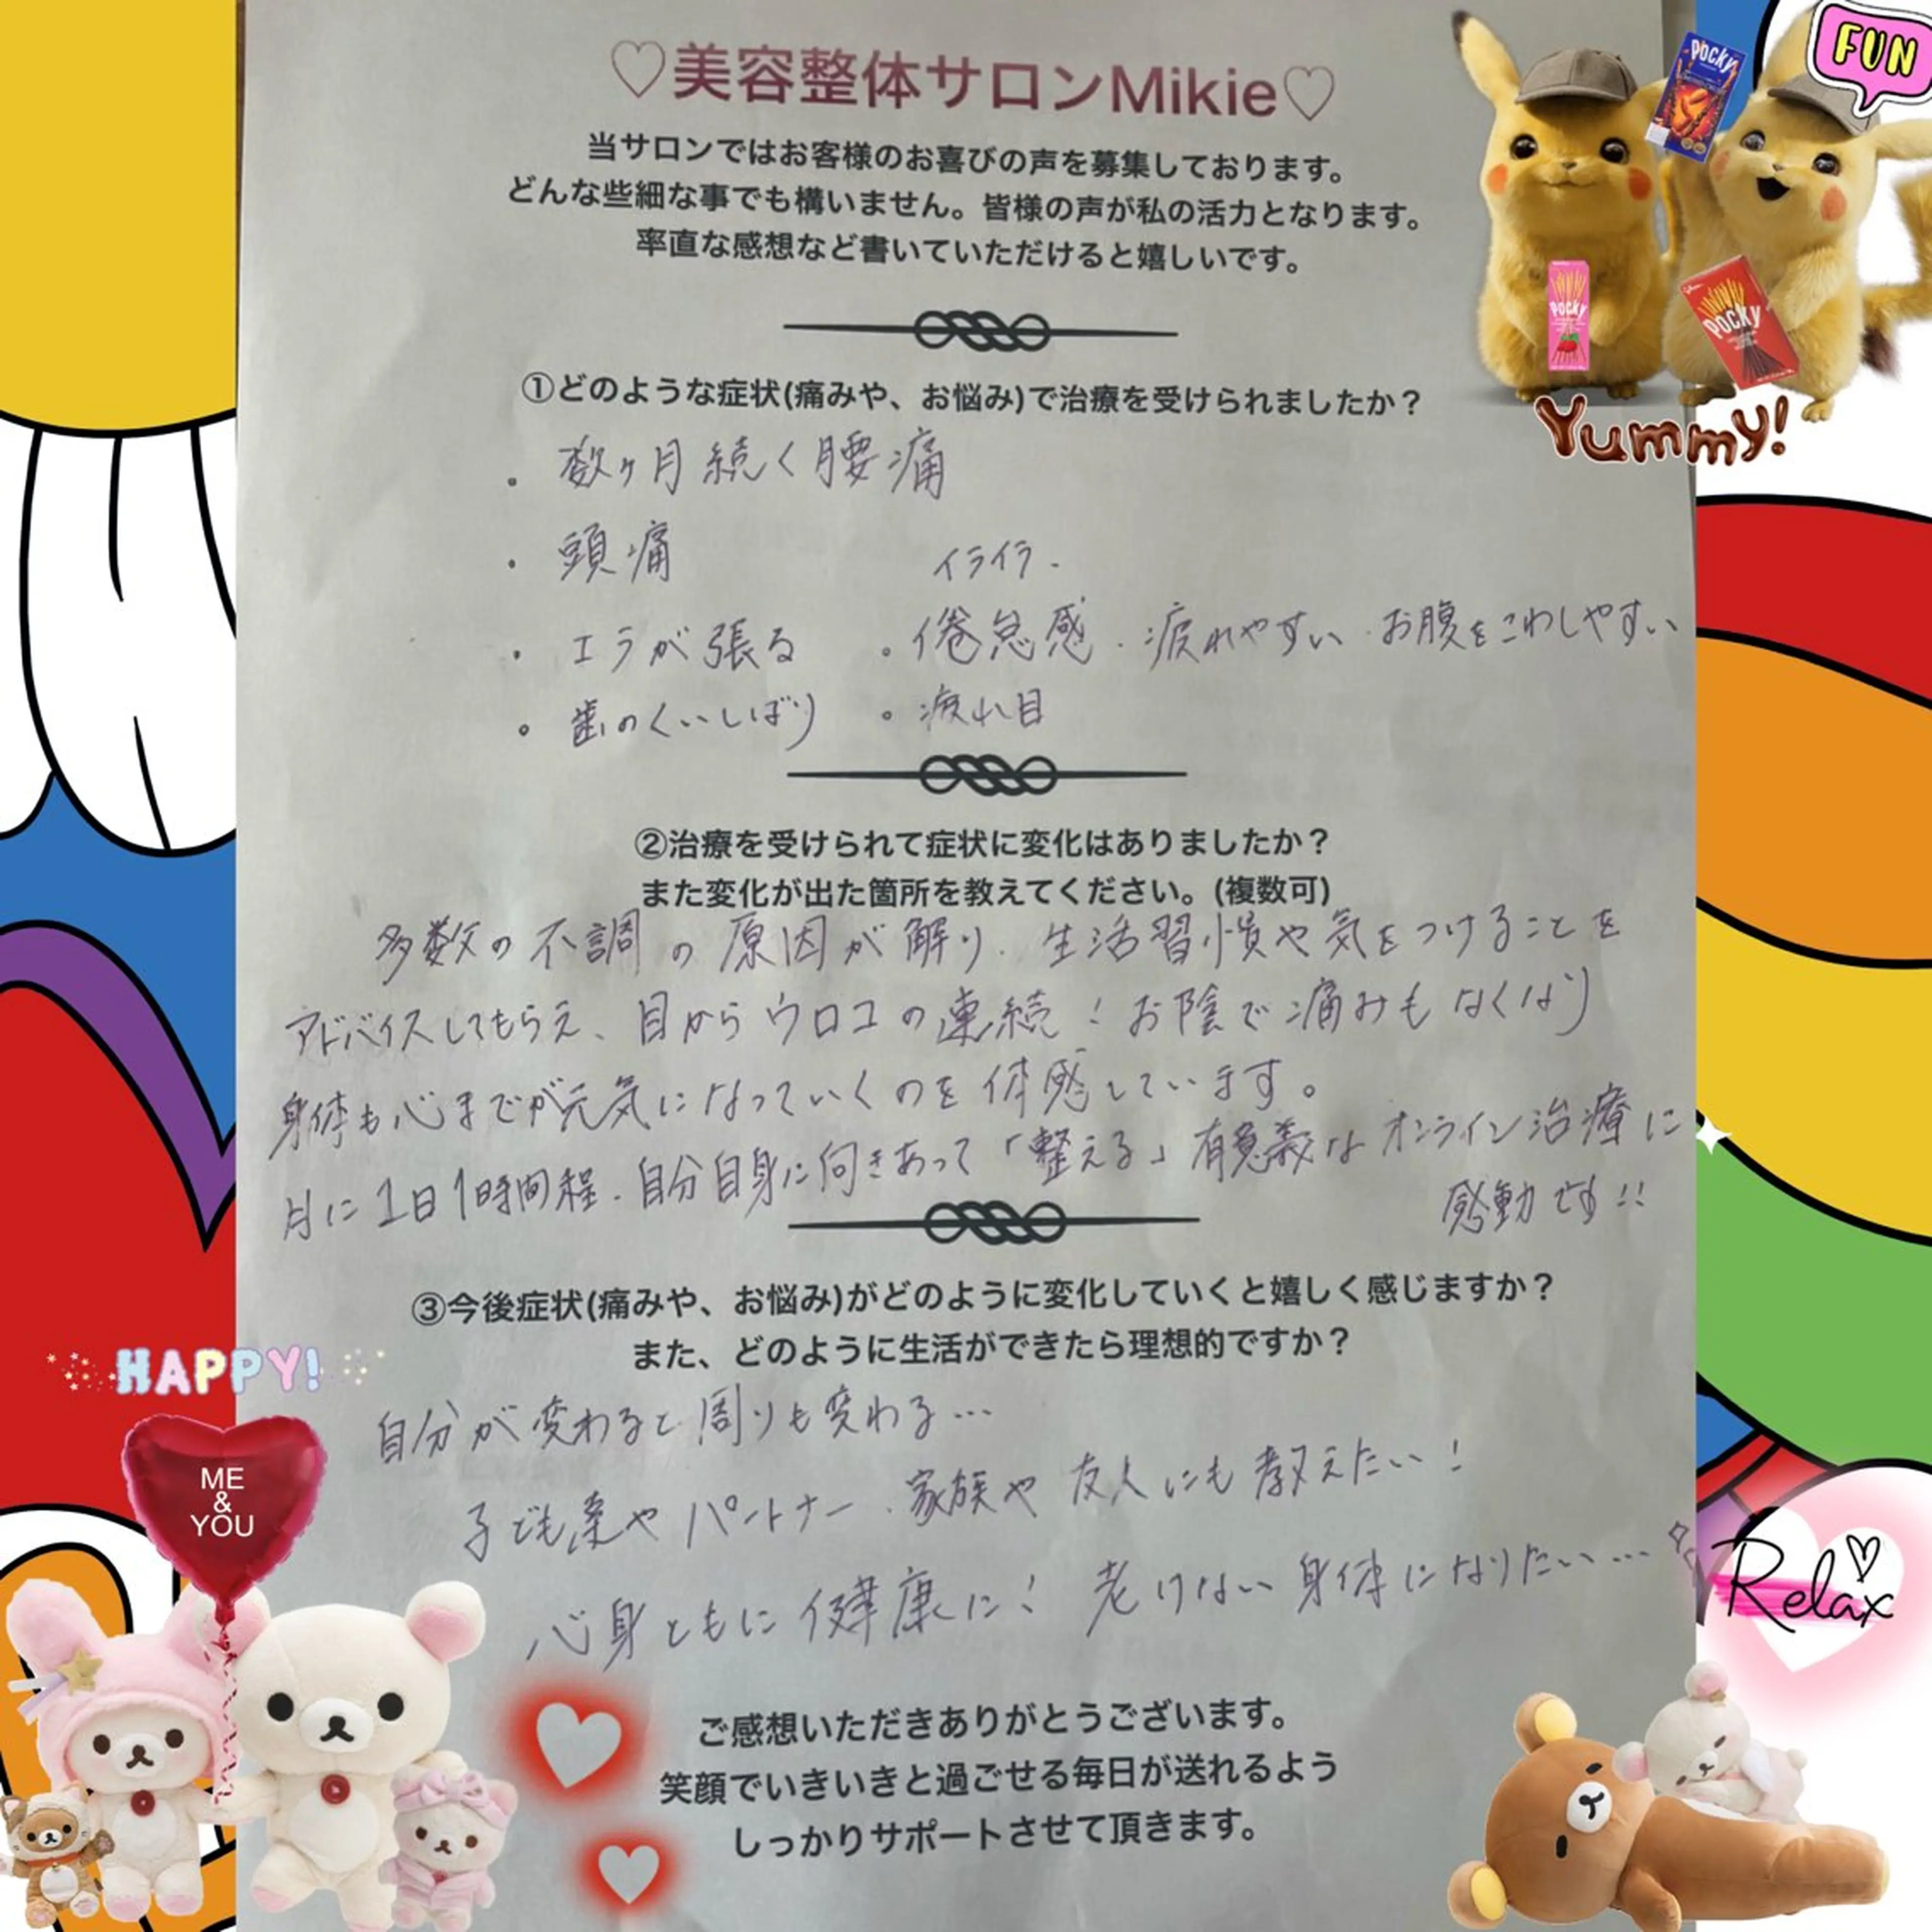 ♡美容整体サロンMikie♡
当サロンではお客様のお喜びの声を募集しております。
どんな些細な事でも構いません。皆様の声が私の活力となります。
率直な感想など書いていただけると嬉しいです。
FUN
Pocky
Pocky
Pocky
Yummy!
①どのような症状(痛みや、お悩み)で治療を受けられましたか？
・数ヶ月続く腰痛
・頭痛
イライラ・
・エラが張る
・倦怠感・疲れやすい・お腹をこわしやすい
・歯のくいしばり
・疲れ目
②治療を受けられて症状に変化はありましたか？
また変化が出た箇所を教えてください。(複数可)
多数の不調の原因が解り、生活習慣や気をつけることを
アドバイスしてもらえ、目からウロコの連続！お陰で痛みもなくなり
身体も心までが元気になっていくのを体感しています。
月に1日1時間程、自分自身に向きあって「整える」有意義なオンライン治療に
感動です!!
③今後症状(痛みや、お悩み)がどのように変化していくと嬉しく感じますか？
また、どのように生活ができたら理想的ですか？
自分が変わると周りも変わる…
子ども達やパートナー、家族や友人にも教えたい！
心身ともに健康に！老けない身体になりたい…
HAPPY!
ME
&
YOU
Relax
ご感想いただきありがとうございます。
笑顔でいきいきと過ごせる毎日が送れるよう
しっかりサポートさせて頂きます。